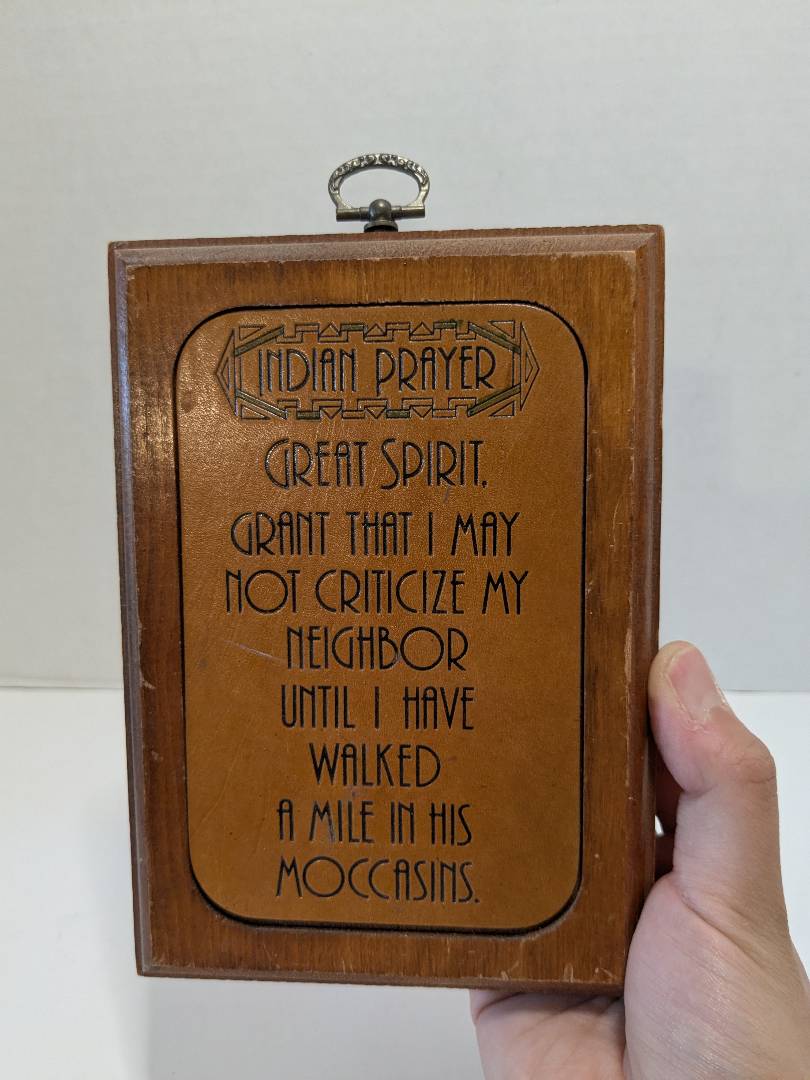 INDIAN PRAYER
GREAT SPIRIT,
GRANT THAT I MAY
NOT CRITICIZE MY
NEIGHBOR
UNTIL I HAVE
WALKED
A MILE IN HIS
MOCCASINS.